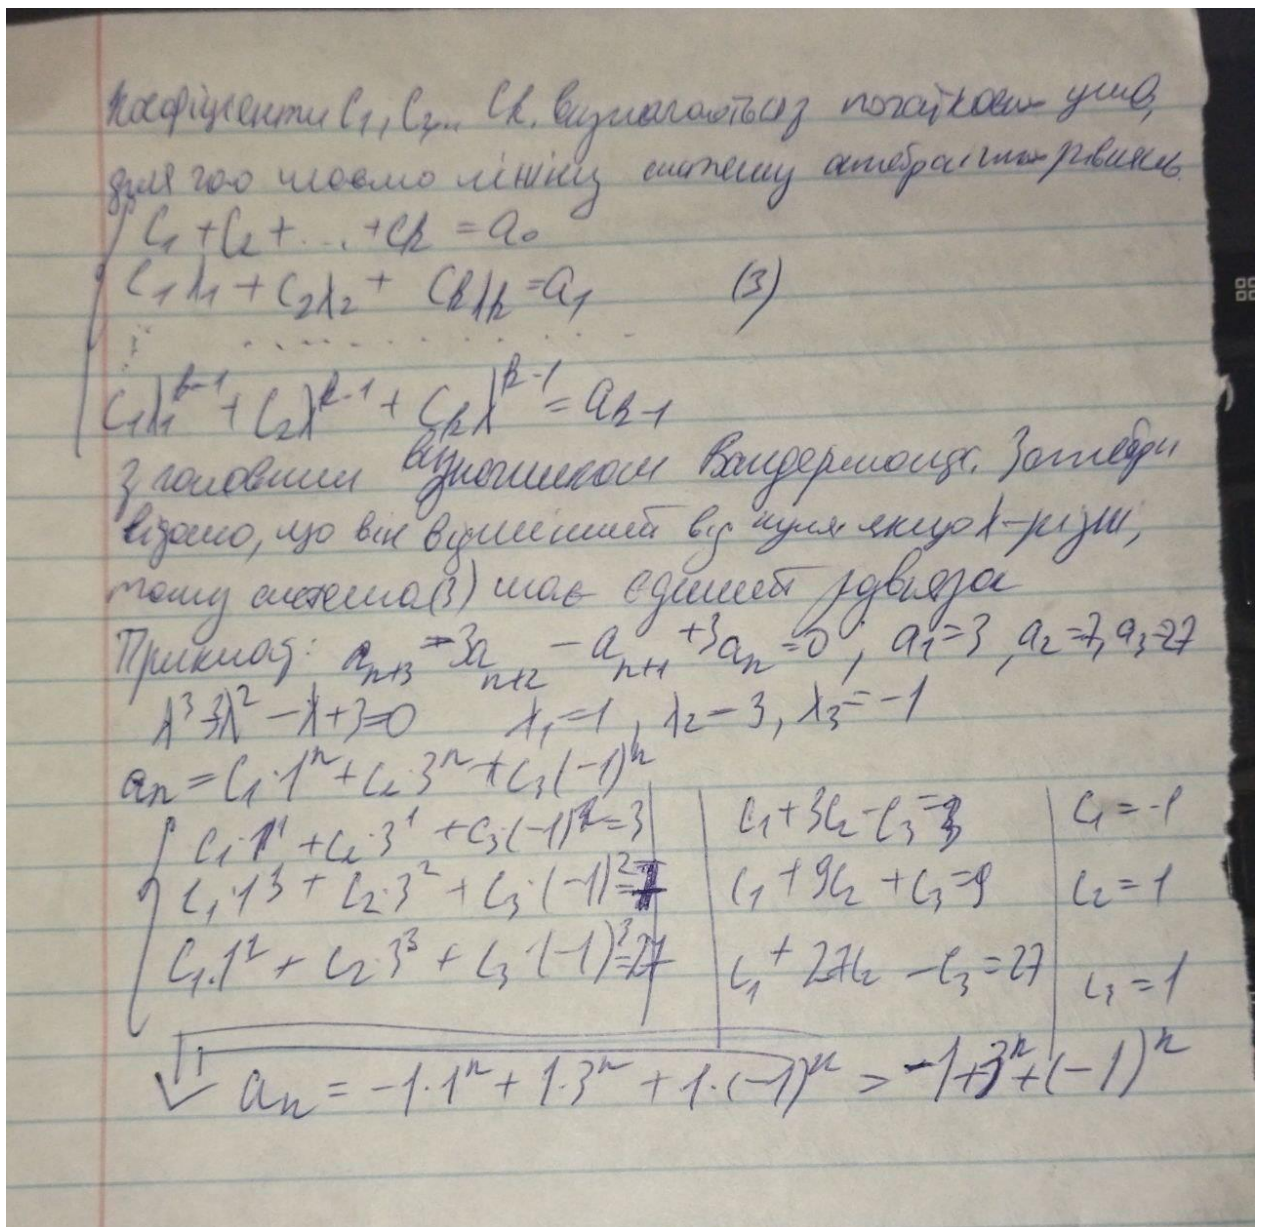 Коефіцієнти C₁, C₂... Ck. визначаються з початкових умов,
для чого маємо лінійну систему алгебраїчних рівнянь
C₁ + C₂ + ... + Ck = a₀
C₁λ₁ + C₂λ₂ + Ckλk = a₁ (3)
. . . . . . . . . . . .
C₁λ₁ᵏ⁻¹ + C₂λᵏ⁻¹ + Ckλᵏ⁻¹ = ak-1
З головним визначником Вандермонда. З алгебри
відомо, що він відмінний від нуля якщо λ-різні,
тому система (3) має єдиний
Приклад: aₙ₊₃ - 3aₙ₊₂ - aₙ₊₁ + 3aₙ = 0, a₁ = 3, a₂ = 7, a₃ = 27
λ³ - 3λ² - λ + 3 = 0 λ₁ = 1, λ₂ = 3, λ₃ = -1
aₙ = C₁·1ⁿ + C₂·3ⁿ + C₃(-1)ⁿ
C₁·1¹ + C₂·3¹ + C₃·(-1)¹ = 3 C₁ + 3C₂ - C₃ = 3 C₁ = -1
C₁·1³ + C₂·3² + C₃·(-1)² = 7 C₁ + 9C₂ + C₃ = 9 C₂ = 1
C₁·1² + C₂·3³ + C₃·(-1)³ = 27 C₁ + 27C₂ - C₃ = 27 C₃ = 1
aₙ = -1·1ⁿ + 1·3ⁿ + 1·(-1)ⁿ = -1 + 3ⁿ + (-1)ⁿ